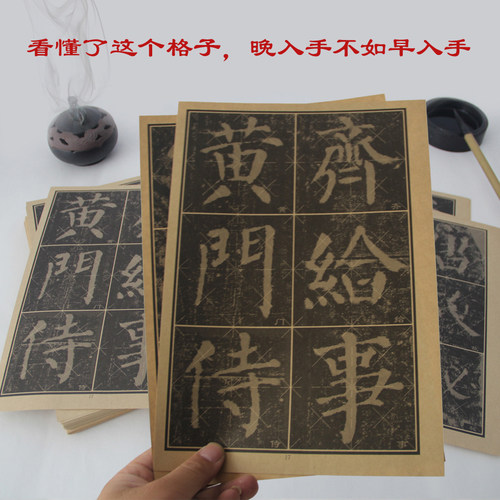 看懂了这个格子，晚入手不如早入手
齊給事
黄門侍
事
黄門侍